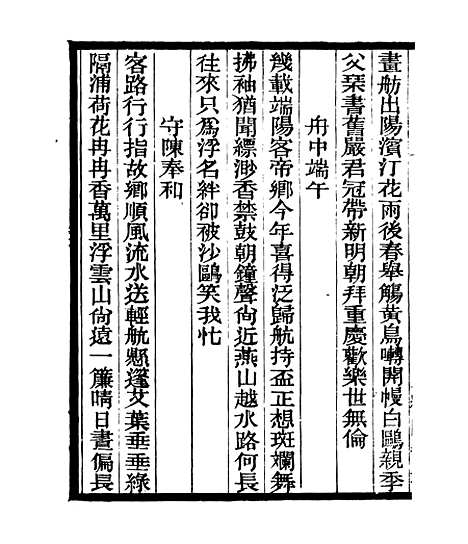 畫舫出陽濱汀花雨後春舉觴黃鳥囀開幔白鷗親季
父琹書舊嚴君冠帶新明朝拜重慶歡樂世無倫
舟中端午
幾載端陽客帝鄉今年喜得泛歸航持盃正想斑斕舞
拂袖猶聞縹渺香禁鼓朝鐘聲尙近燕山越水路何長
往來只爲浮名絆卻被沙鷗笑我忙
守陳奉和
客路行行指故鄉順風流水送輕航懸蓬艾葉垂垂綠
隔浦荷花冉冉香萬里浮雲山尙遠一簾晴日晝偏長